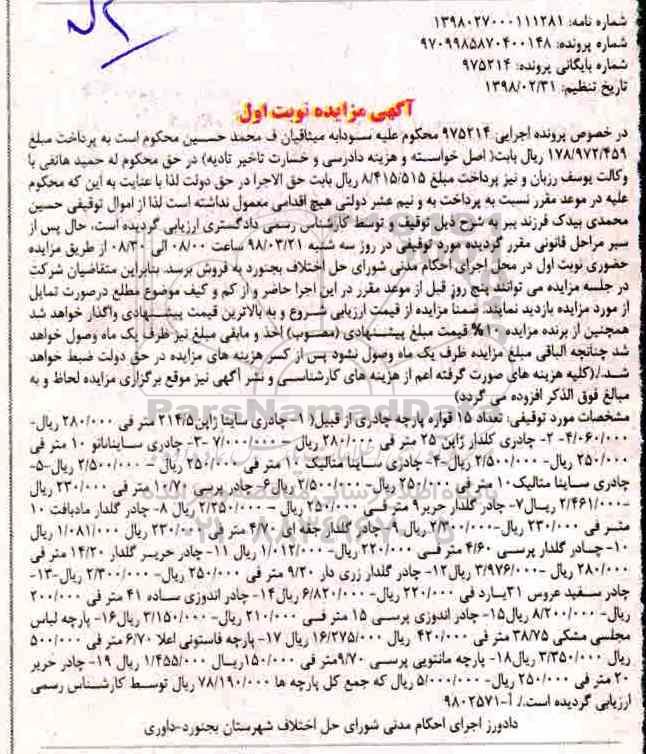 شماره نامه: ۱۳۹۸۰۲۷۰۰۰۱۱۱۲۸۱
شماره پرونده: ۹۷۰۹۹۸۵۸۷۰۴۰۰۱۴۸
شماره بایگانی پرونده: ۹۷۵۲۱۴
تاریخ تنظیم: ۱۳۹۸/۰۲/۳۱
آگهی مزایده نوبت اول
در خصوص پرونده اجرایی ۹۷۵۲۱۴ محکوم علیه سودابه میثاقیان ف محمد حسین محکوم است به پرداخت مبلغ
۱۷۸/۹۷۲/۴۵۹ ریال بابت( اصل خواسته و هزینه دادرسی و خسارت تاخیر تادیه) در حق محکوم له حمید هاتفی با
وکالت یوسف رزبان و نیز پرداخت مبلغ ۸/۴۱۵/۵۱۵ ریال بابت حق الاجرا در حق دولت لذا با عنایت به این که محکوم
علیه در موعد مقرر نسبت به پرداخت به و نیم عشر دولتی هیچ اقدامی معمول نداشته است لذا از اموال توقیفی حسین
محمدی بیدک فرزند ببر به شرح ذیل توقیف و توسط کارشناس رسمی دادگستری ارزیابی گردیده است، حال پس از
سیر مراحل قانونی مقرر گردیده مورد توقیفی در روز سه شنبه ۹۸/۰۳/۲۱ ساعت ۰۸/۰۰ الی ۰۸/۳۰ از طریق مزایده
حضوری نوبت اول در محل اجرای احکام مدنی شورای حل اختلاف بجنورد به فروش برسد. بنابراین متقاضیان شرکت
در جلسه مزایده می توانند پنج روز قبل از موعد مقرر در این اجرا حاضر و از کم و کیف موضوع مطلع درصورت تمایل
از مورد مزایده بازدید نمایند. ضمنا مزایده از قیمت ارزیابی شروع و به بالاترین قیمت پیشنهادی واگذار خواهد شد
همچنین از برنده مزایده ۱۰% قیمت مبلغ پیشنهادی (مصوب) اخذ و مابقی مبلغ نیز ظرف یک ماه وصول خواهد
شد چنانچه الباقی مبلغ مزایده ظرف یک ماه وصول نشود پس از کسر هزینه های مزایده در حق دولت ضبط خواهد
شد./(کلیه هزینه های صورت گرفته اعم از هزینه های کارشناسی و نشر آگهی نیز موقع برگزاری مزایده لحاظ و به
مبالغ فوق الذکر افزوده می گردد)
مشخصات مورد توقیفی: تعداد ۱۵ قواره پارچه چادری از قبیل( ۱-چادری ساینا ژاپن۲۱۴/۵ متر فی ۲۸۰/۰۰۰ ریال-
۴/۰۶۰/۰۰۰- ۲- چادری کلدار ژاپن ۲۵ متر فی ۲۸۰/۰۰۰ ریال – ۷/۰۰۰/۰۰۰ -۳- چادری سایناناتو ۱۰ متر فی
۲۵۰/۰۰۰ ریال- ۲/۵۰۰/۰۰۰ ریال-۴- چادری ساینا متالیک ۱۰ متر فی ۲۵۰/۰۰۰ ریال – ۲/۵۰۰/۰۰۰ ریال-۵-
چادری ساینا متالیک۱۰ متر فی ۲۵۰/۰۰۰ ریال- ۲/۵۰۰/۰۰۰ ریال۶- چادر پرسی ۱۰/۷۰ متر فی ۲۳۰/۰۰۰ ریال
-۲/۴۶۱/۰۰۰ ریال۷- چادر گلدار حریر۹ متر فی ۲۵۰/۰۰۰ ریال – ۲/۲۵۰/۰۰۰ ریال ۸- چادر گلدار مادبافت ۱۰
متر فی ۲۳۰/۰۰۰ ریال-۲/۳۰۰/۰۰۰ ریال ۹- چادر گلدار جفه ای ۴/۷۰ متر فی ۲۳۰/۰۰۰ ریال ۱/۰۸۱/۰۰۰ ریال
۱۰- چادر گلدار پرسی ۴/۶۰ متر فی ۲۲۰/۰۰۰ ریال- ۱/۰۱۲/۰۰۰ ریال ۱۱- چادر حریر گلدار ۱۴/۲۰ متر فی
۲۸۰/۰۰۰ ریال -۳/۹۷۶/۰۰۰ ریال۱۲- چادر گلدار زری دار ۹/۲۰ متر فی ۲۵۰/۰۰۰ ریال- ۲/۳۰۰/۰۰۰ ریال-۱۳-
چادر سفید عروس ۳۱یارد فی ۲۲۰/۰۰۰ ریال- ۶/۸۲۰/۰۰۰ ریال۱۴- چادر اندوزی ساده ۴۱ متر فی ۲۰۰/۰۰۰
ریال- ۸/۲۰۰/۰۰۰ ریال۱۵- چادر اندوزی پرسی ۱۵ متر فی ۲۱۰/۰۰۰ ریال- ۳/۱۵۰/۰۰۰ ریال۱۶- پارچه لباس
مجلسی مشکی ۳۸/۷۵ متر فی ۴۲۰/۰۰۰ ریال ۱۶/۲۷۵/۰۰۰ ریال ۱۷- پارچه فاستونی اعلا ۶/۷۰ متر فی ۵۰۰/۰۰۰
ریال ۳/۳۵۰/۰۰۰ ریال۱۸- پارچه مانتویی پرسی ۹/۷۰متر فی ۱۵۰/۰۰۰ریال ۱/۴۵۵/۰۰۰ ریال ۱۹- چادر حریر
۲۰ متر فی ۲۵۰/۰۰۰ ریال- ۵/۰۰۰/۰۰۰ ریال که جمع کل پارچه ها ۷۸/۱۹۰/۰۰۰ ریال توسط کارشناس رسمی
ارزیابی گردیده است./ آ-۹۸۰۲۵۷۱
دادورز اجرای احکام مدنی شورای حل اختلاف شهرستان بجنورد-داوری
ParsNamadData